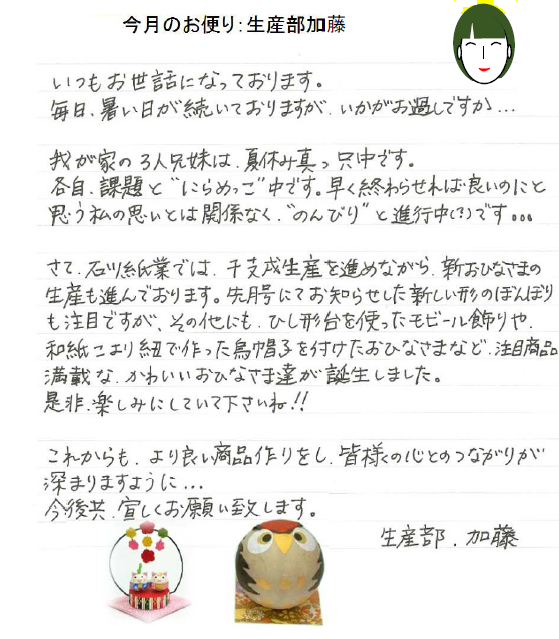 今月のお便り:生産部加藤
いつもお世話になっております。
毎日、暑い日が続いておりますが、いかがお過しですか…
我が家の3人兄妹は、夏休み真っ只中です。
各自、課題と"にらめっこ"中です。早く終わらせれば良いのにと
思う私の思いとは関係なく、"のんびり"と進行中(?)です。。。
さて、石川紙業では、干支戌生産を進めながら、新おひなさまの
生産も進んでおります。先月号にてお知らせした新しい形のぼんぼり
も注目ですが、その他にも、ひし形台を使ったモビール飾りや、
和紙こより紐で作った烏帽子を付けたおひなさまなど、注目商品
満載な、かわいいおひなさま達が誕生しました。
是非、楽しみにしていて下さいね!!
これからも、より良い商品作りをし、皆様の心とのつながりが
深まりますように…
今後共、宜しくお願い致します。
生産部、加藤